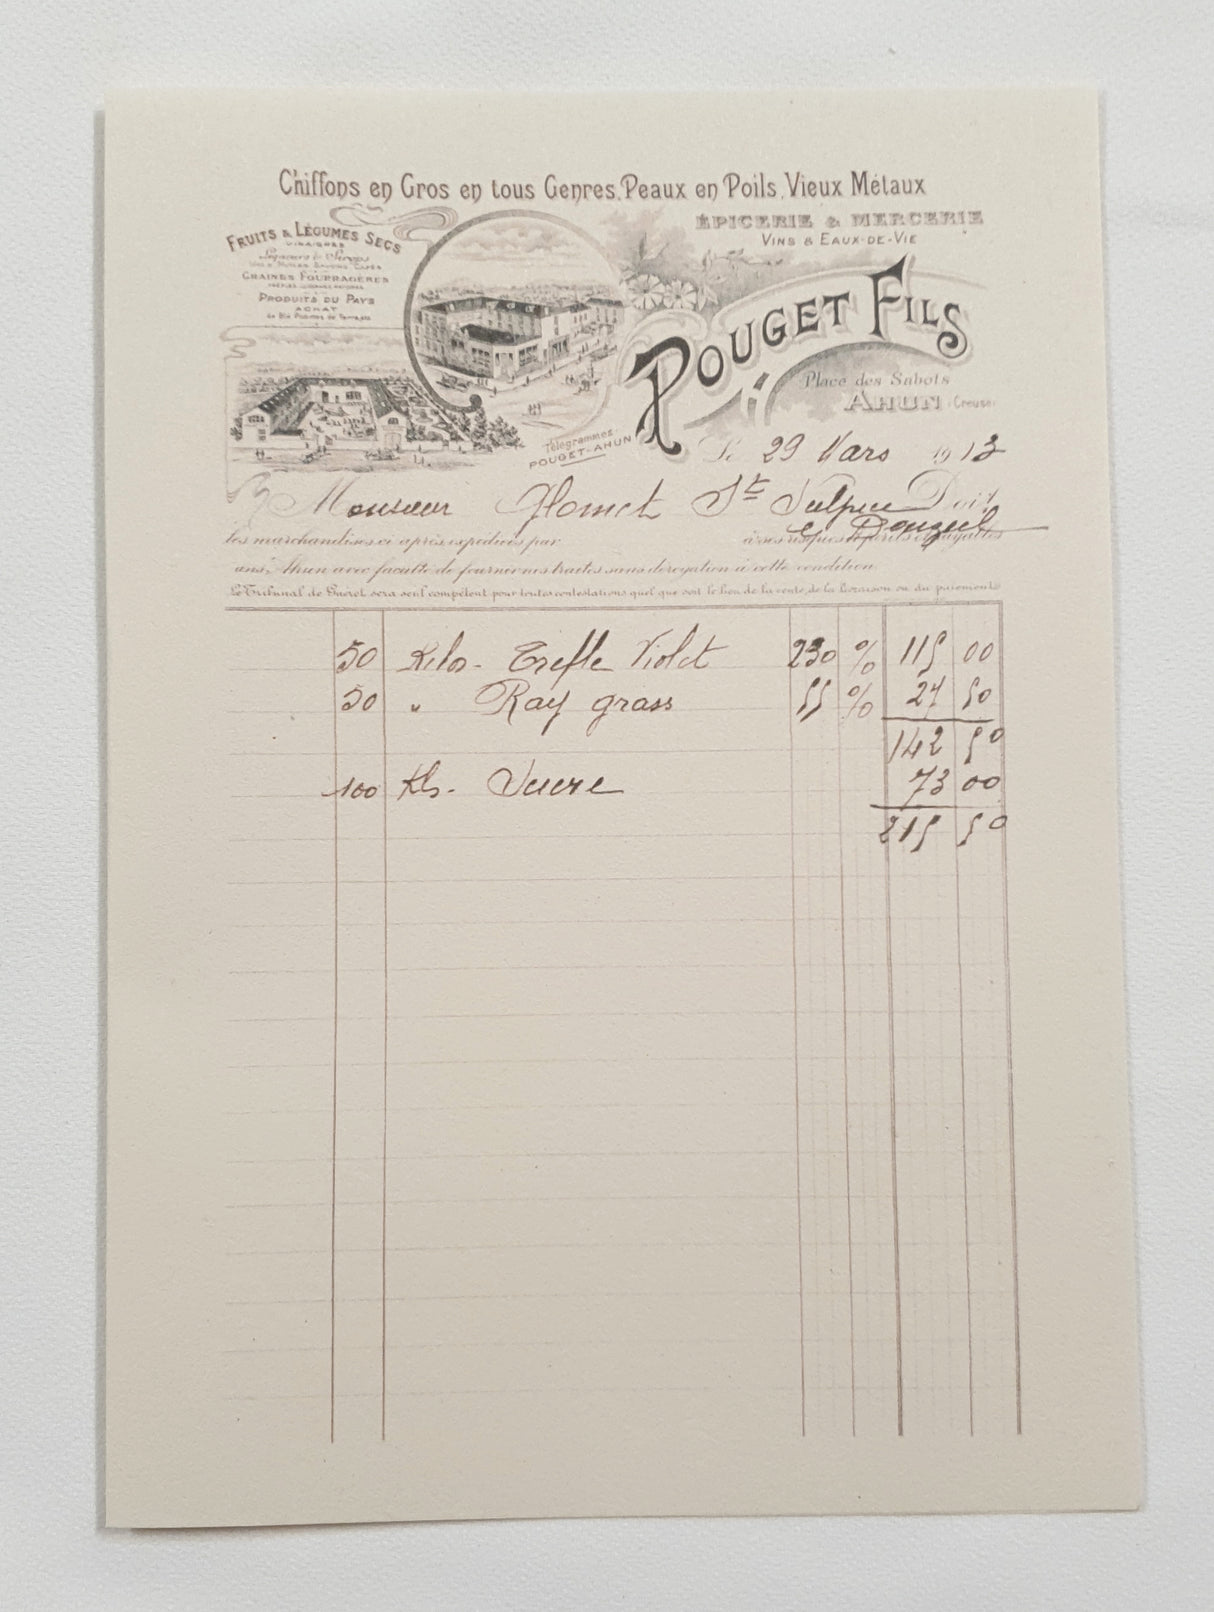 Chiffons en Gros en tous Genres, Peaux en Poils, Vieux Métaux
FRUITS & LÉGUMES SECS
VINAIGRES
Liqueurs & Sirops
GRAINES FOURRAGÈRES
PRODUITS DU PAYS
ACHAT
de Blé Pommes de Terre
ÉPICERIE & MERCERIE
VINS & EAUX-DE-VIE
POUGET FILS
Place des Sabots
AHUN (Creuse)
Télégrammes:
POUGET-AHUN
Le 29 Mars 1913
Monsieur St Sulpice Doit,
le Donzeil
les marchandises ci après expédiées par à ses risques et périls et payables
Ahun avec faculté de fournir nos traites sans dérogation à cette condition.
Le Tribunal de Guéret sera seul compétent pour toutes contestations quel que soit le lieu de la vente, de la livraison ou du paiement
50 Kilos - Trefle Violet 230 % 115 00
50 " Ray grass 55 % 27 50
142 50
100 Kls - Sucre 73 00
215 50